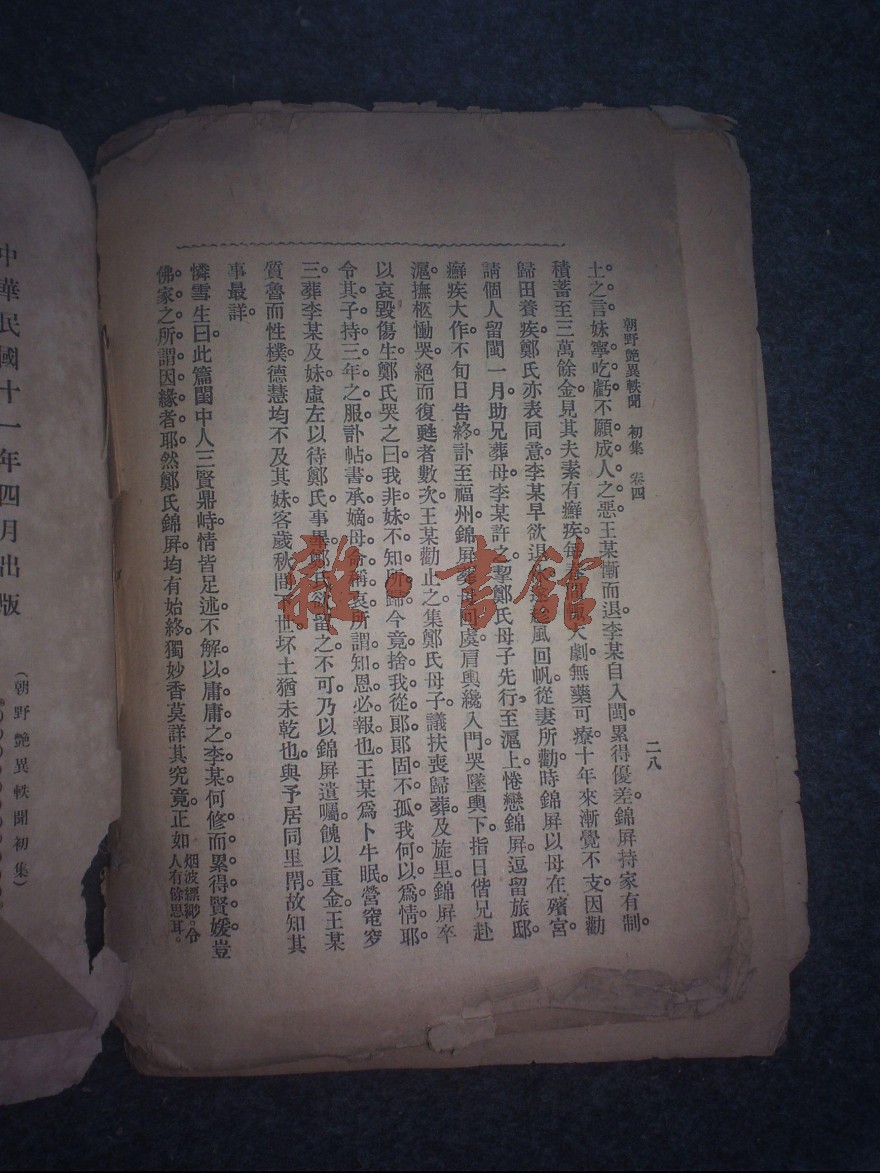 朝野艶異軼聞　初集　卷四
二八
土。之言。妹寧吃虧。不願成人之惡。王某慚而退。李某自入閩。累得優差。錦屏持家有制。
積蓄至三萬餘金。見其夫素有癬疾。每春間大劇。無藥可療。十年來漸覺不支。因勸
歸田養疾。鄭氏亦表同意。李某早欲退風回帆。從妻所勸。時錦屏以母在殯宮。
請個人留閩一月。助兄葬母。李某許之。挈鄭氏母子先行。至滬上。惓戀錦屏。逗留旅邸。
癬疾大作。不旬日告終。訃至福州。錦屏肩輿纔入門。哭墜輿下。指日偕兄赴
滬。撫柩慟哭。絕而復甦者數次。王某勸止之。集鄭氏母子。議扶喪歸葬。及旋里。錦屏卒
以哀毀傷生。鄭氏哭之曰。我非妹不知所歸。今竟捨我從郎。郎固不孤。我何以爲情耶。
令其子持三年之服。訃帖書承嫡母命稱哀。所謂知恩必報也。王某爲卜牛眠。營窀穸
三。葬李某及妹。虛左以待鄭氏。事畢。鄭氏欲留之不可。乃以錦屏遺囑。餽以重金。王某
質魯而性樸。德慧均不及其妹。客歲秋間下世。坏土猶未乾也。與予居同里閈。故知其
事最詳。
憐雪生曰。此篇閨中人三賢鼎峙。情皆足述。不解以庸庸之李某。何修而累得賢媛。豈
佛家之所謂因緣者耶。然鄭氏錦屏均有始終。獨妙香莫詳其究竟。正如烟波縹緲。令人有餘思耳。
中華民國十一年四月出版
（朝野艶異軼聞初集）
雜·書館